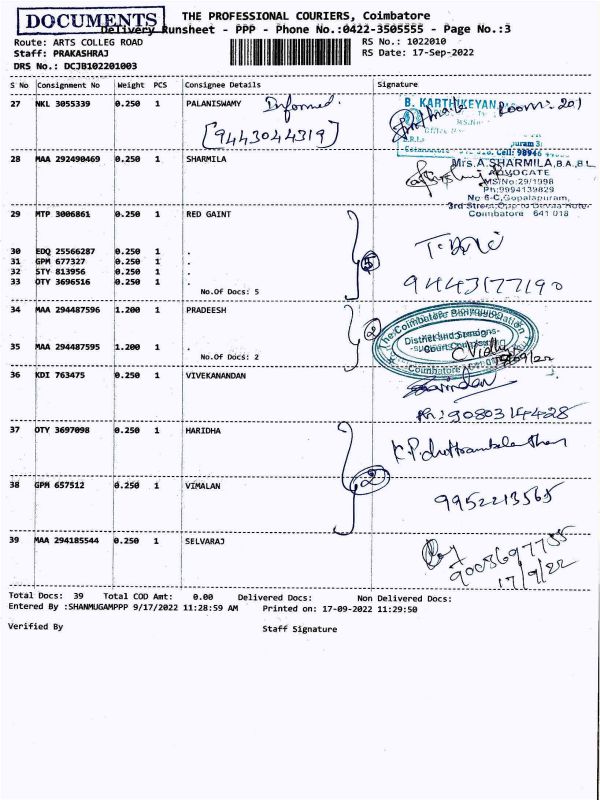 DOCUMENTS
THE PROFESSIONAL COURIERS, Coimbatore
Delivery Runsheet - PPP - Phone No.:0422-3505555 - Page No.:3
Route: ARTS COLLEG ROAD
RS No.: 1022010
Staff: PRAKASHRAJ
RS Date: 17-Sep-2022
DRS No.: DCJB102201003
S No Consignment No Weight PCS Consignee Details Signature
27 NKL 3055339 0.250 1 PALANISWAMY Informed. B. KARTHIKEYAN Room: 201
[9443044319]
Cell: 98946
28 MAA 292490469 0.250 1 SHARMILA Mrs.A.SHARMILA,B.A.,B.L
ADVOCATE
MS/No:29/1998
Ph:9994139829
No 6-C,Gopalapuram,
3rd Street,Opp to Devaa Hotel
Coimbatore 641 018
29 MTP 3006861 0.250 1 RED GAINT
30 EDQ 25566287 0.250 1 .
31 GPM 677327 0.250 1 . 5
32 STY 813956 0.250 1 .
33 OTY 3696516 0.250 1 . 9443177190
No.Of Docs: 5
34 MAA 294487596 1.200 1 PRADEESH 2
The Coimbatore Bar Association
District and Sessions
Court Campus
Coimbatore 641 018
35 MAA 294487595 1.200 1 .
No.Of Docs: 2
36 KDI 763475 0.250 1 VIVEKANANDAN
Ph: 9080314428
37 OTY 3697098 0.250 1 HARIDHA
2
38 GPM 657512 0.250 1 VIMALAN 9952213565
39 MAA 294185544 0.250 1 SELVARAJ
9008697755
17/9/22
Total Docs: 39 Total COD Amt: 0.00 Delivered Docs: Non Delivered Docs:
Entered By :SHANMUGAMPPP 9/17/2022 11:28:59 AM Printed on: 17-09-2022 11:29:50
Verified By Staff Signature